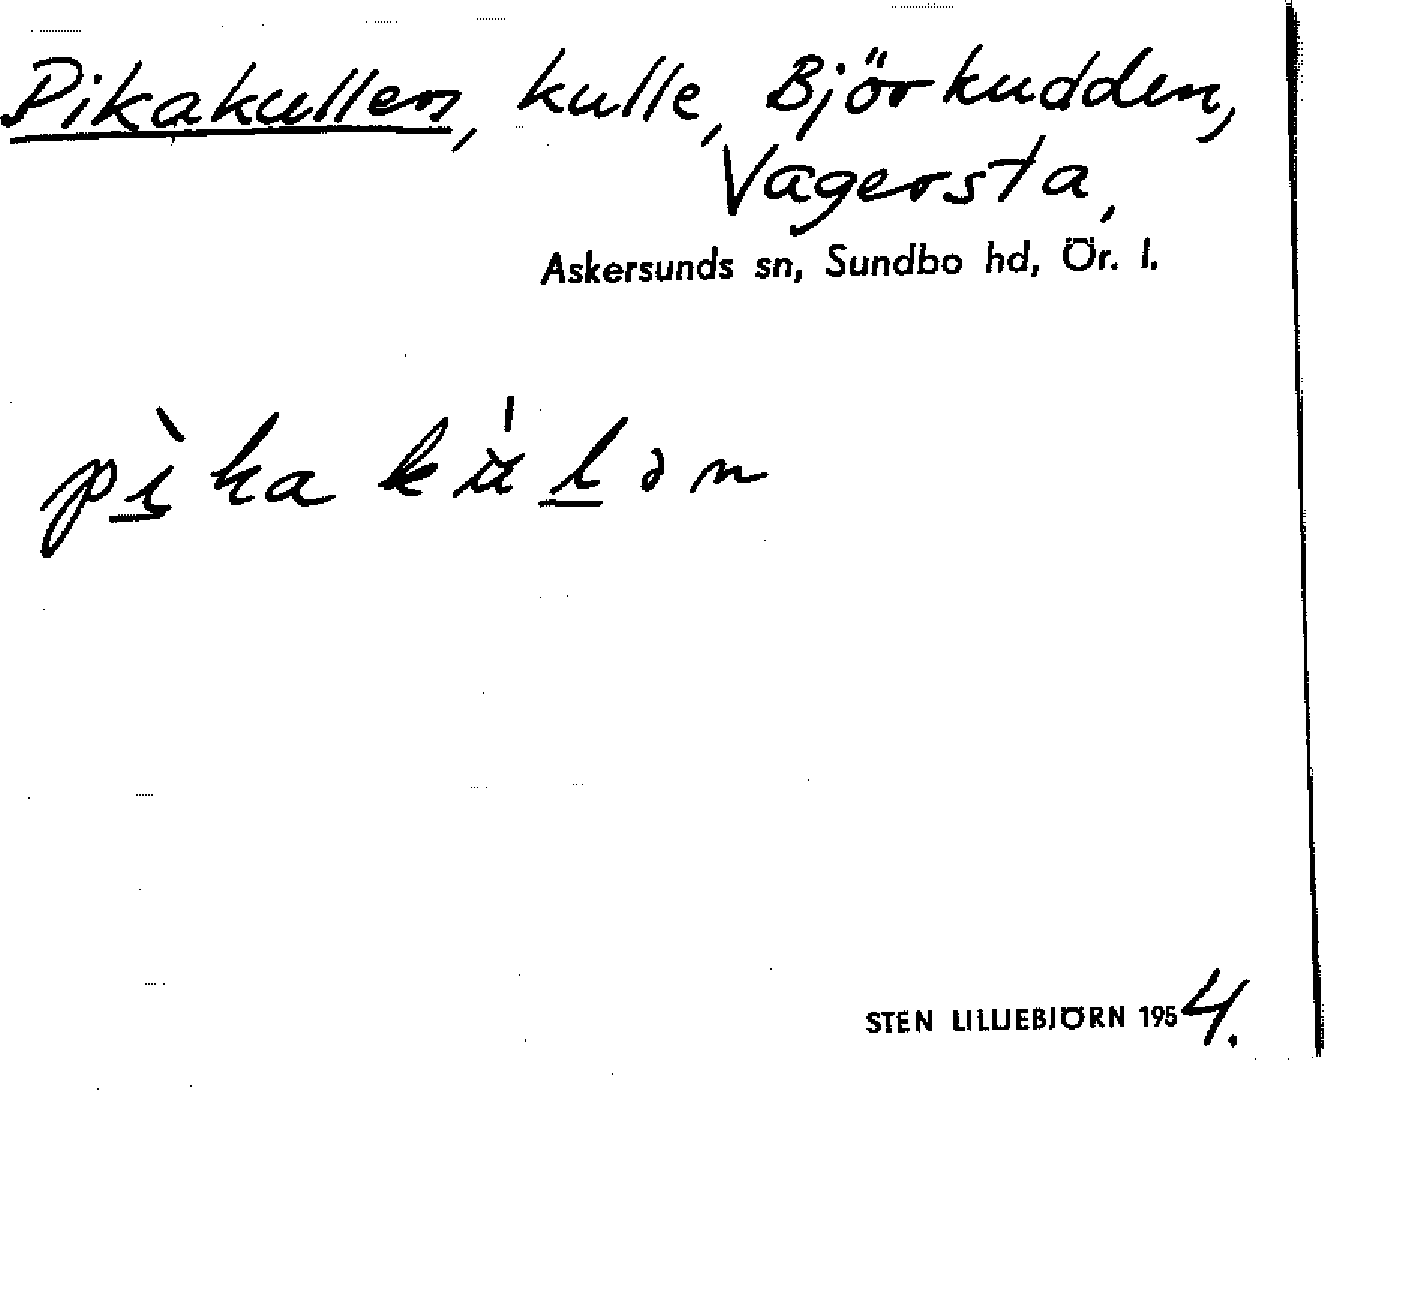 Pikakullen, kulle, Björkudden,
Vagersta,
Askersunds sn, Sundbo hd, Ör. l.
pì̠ka ku̍l̠ən
STEN LILLIEBJÖRN 1954.